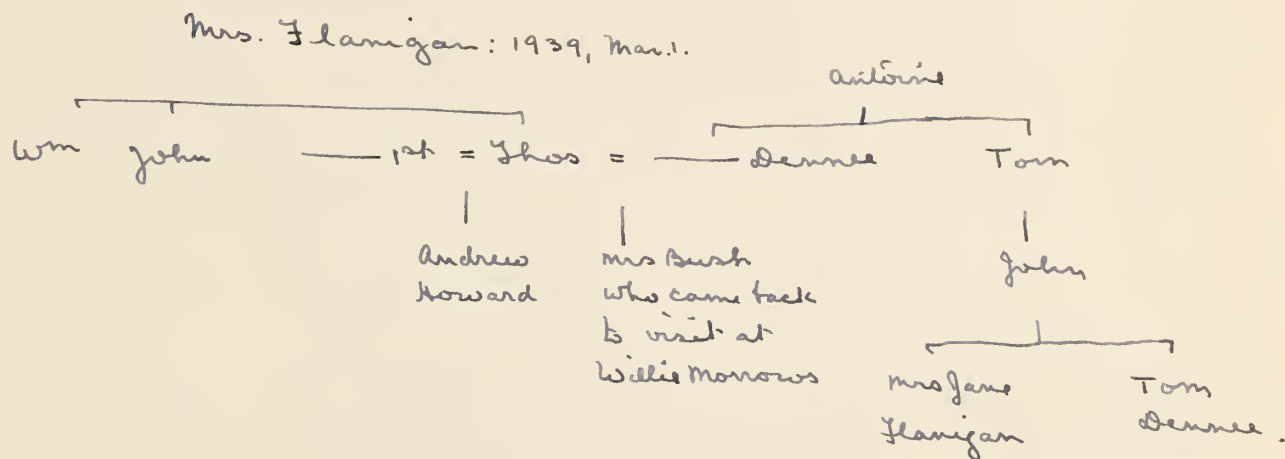 Mrs. Flanigan: 1939, Mar. 1.
Antoine
Wm John —— 1st = Thos = —— Dennee Tom
Andrew Howard
Mrs Bush
who came back
to visit at
Willie Morrows
John
Mrs Jane
Flanigan
Tom
Dennee.